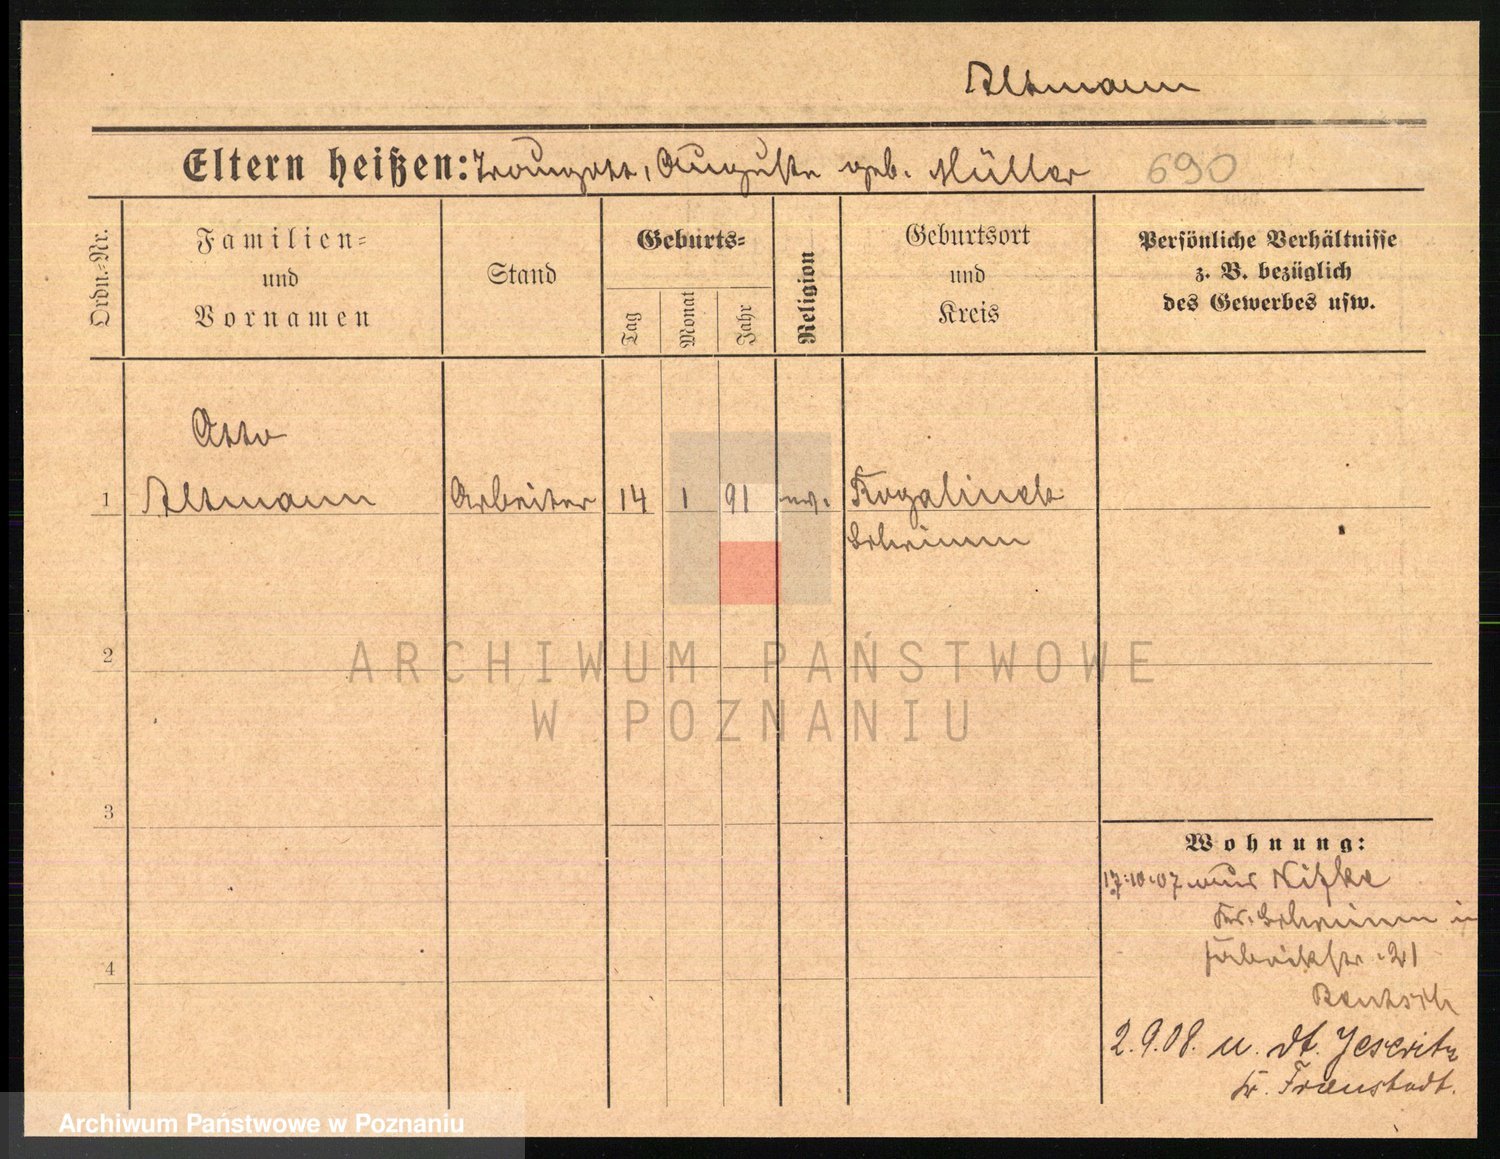 Altmann
Eltern heißen: Traugott, Auguste geb. Müller 690
Ordn.-Nr.
Familien-
und
Vornamen
Stand
Geburts-
Tag
Monat
Jahr
Religion
Geburtsort
und
Kreis
Persönliche Verhältnisse
z. B. bezüglich
des Gewerbes usw.
Otto
1 Altmann Arbeiter 14 1 91 ev. Rogalinek
Schrimm
2
3
4
Wohnung:
17.10.07 aus
Kr. Schrimm in
Fabrikstr. 21
2.9.08. n. dt. Jeseritz
Kr. Fraustadt.
ARCHIWUM PAŃSTWOWE
W POZNANIU
Archiwum Państwowe w Poznaniu